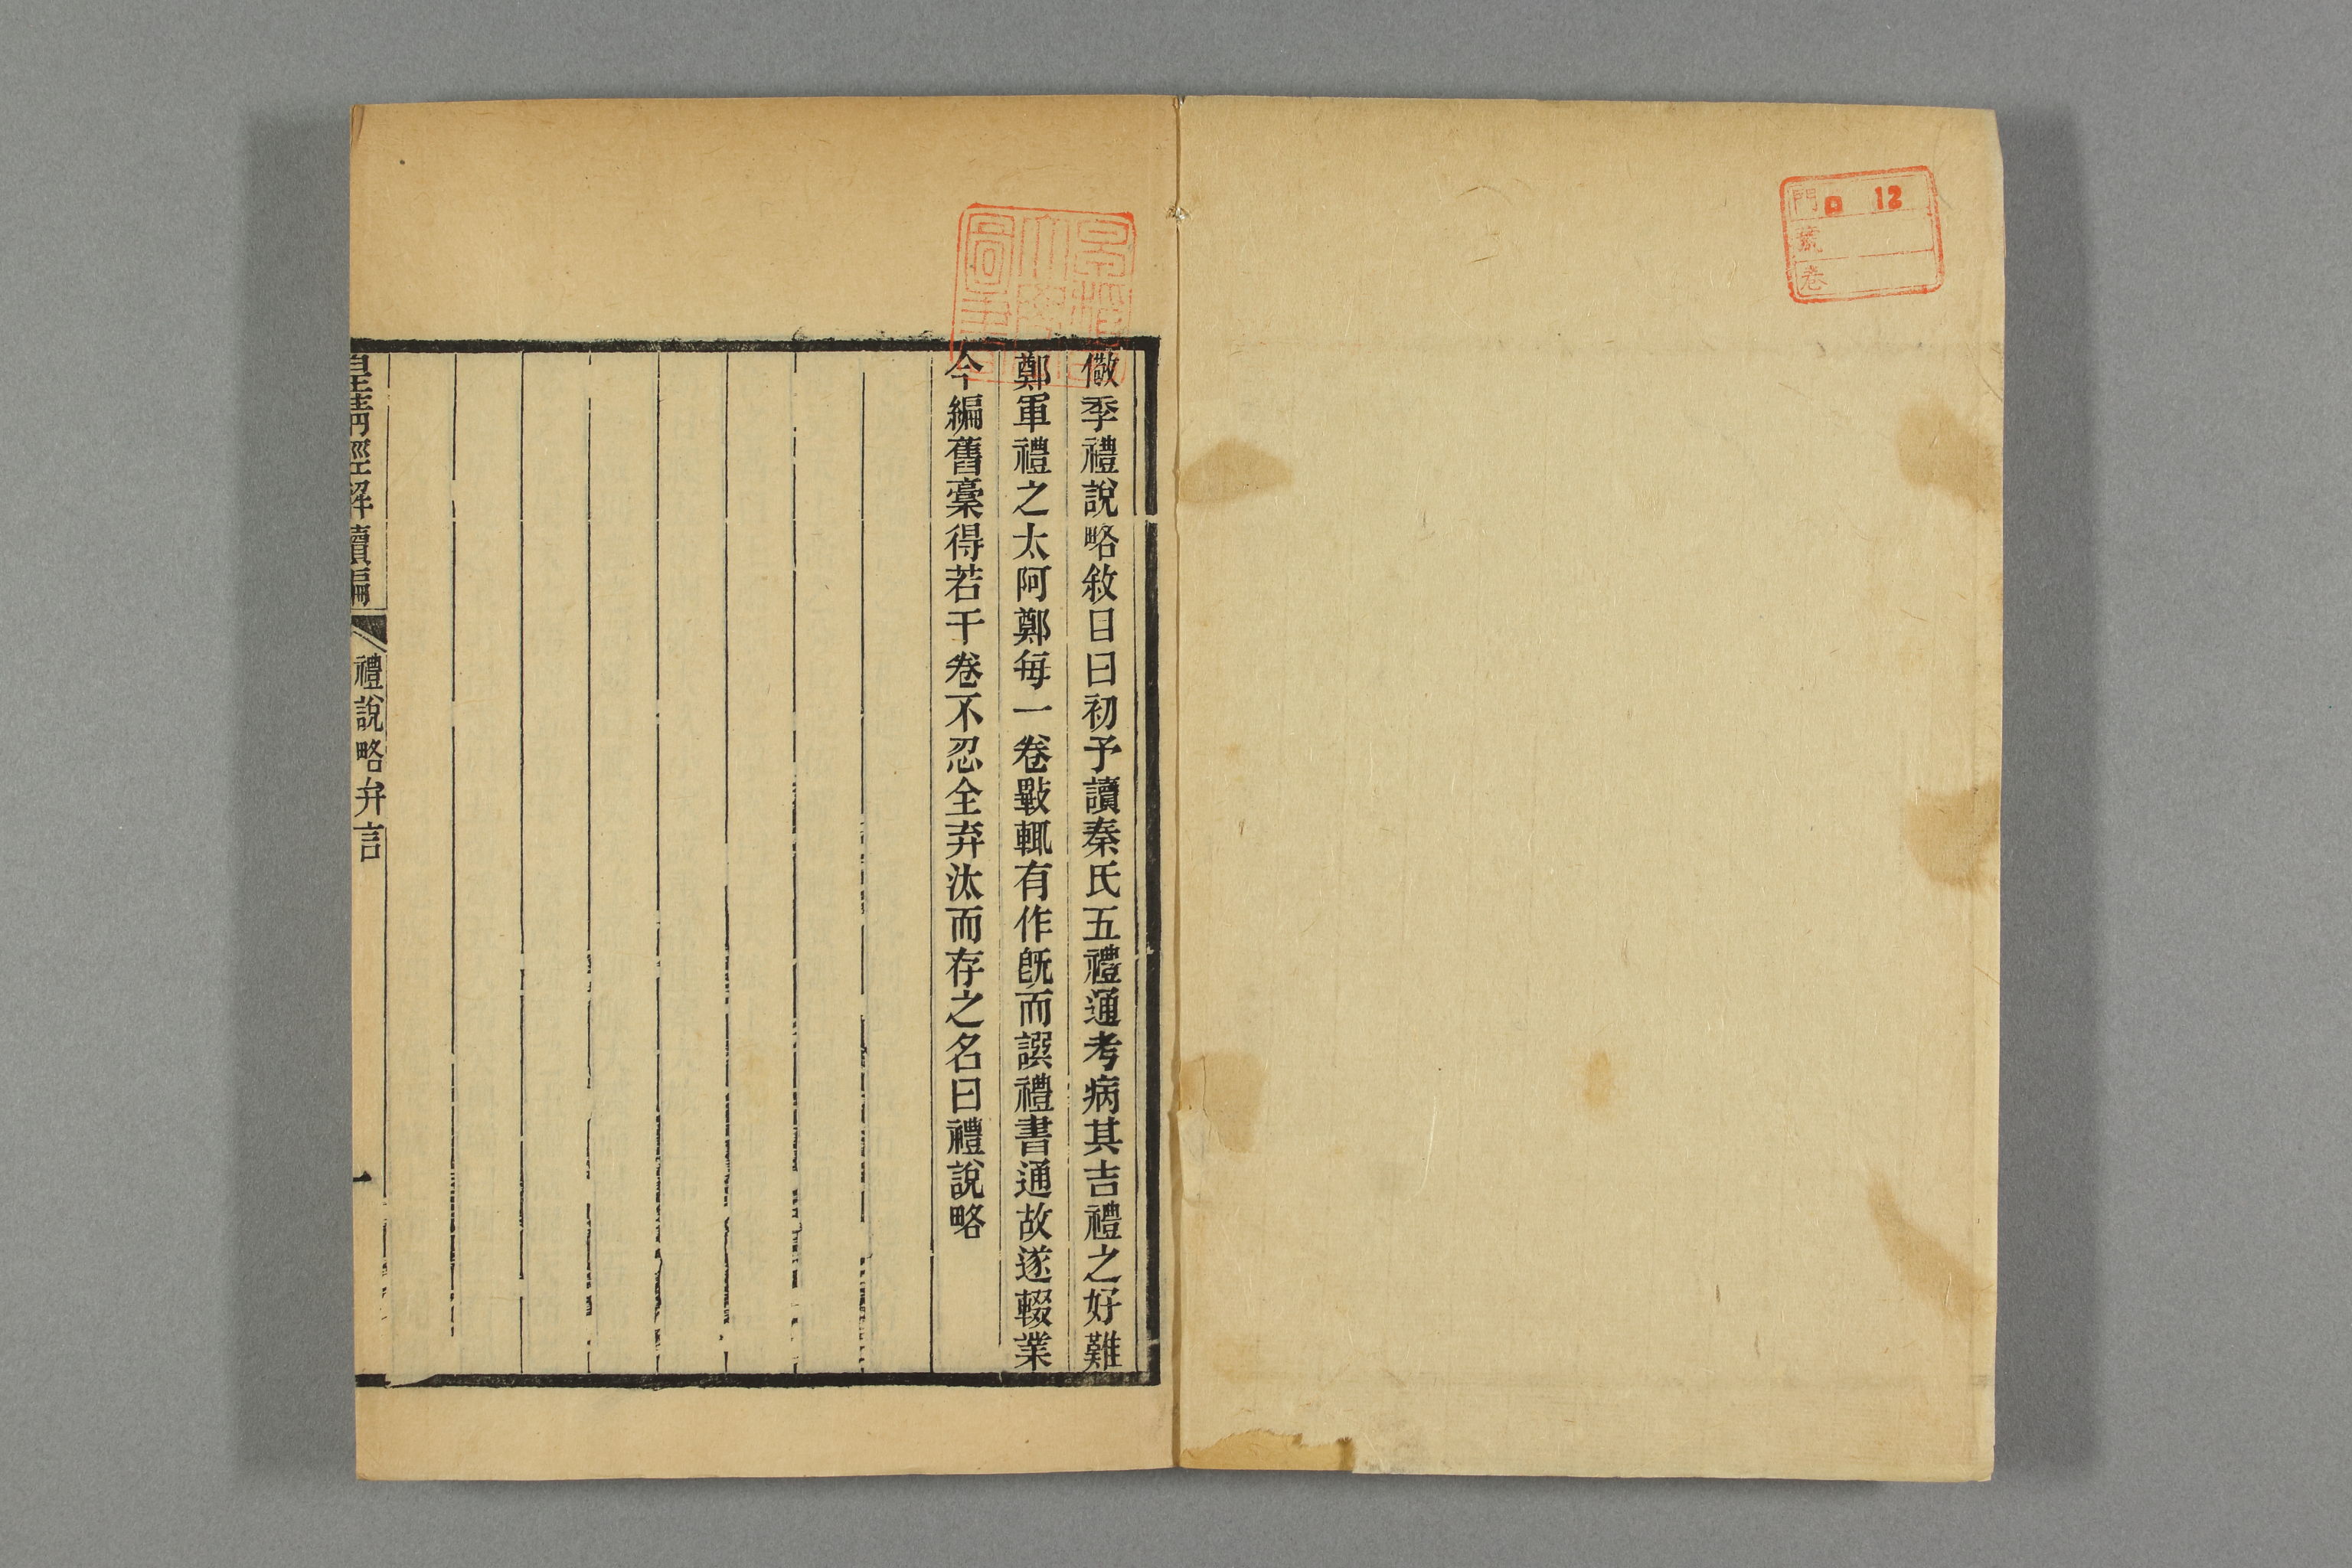 門 ロ 12
號
卷
儆季禮說略敘目曰初予讀秦氏五禮通考病其吉禮之好難
鄭軍禮之太阿鄭每一卷斁輒有作旣而譔禮書通故遂輟業
今編舊稾得若干卷不忍全弃汰而存之名曰禮說略
皇淸經解續編
禮說略弁言
一